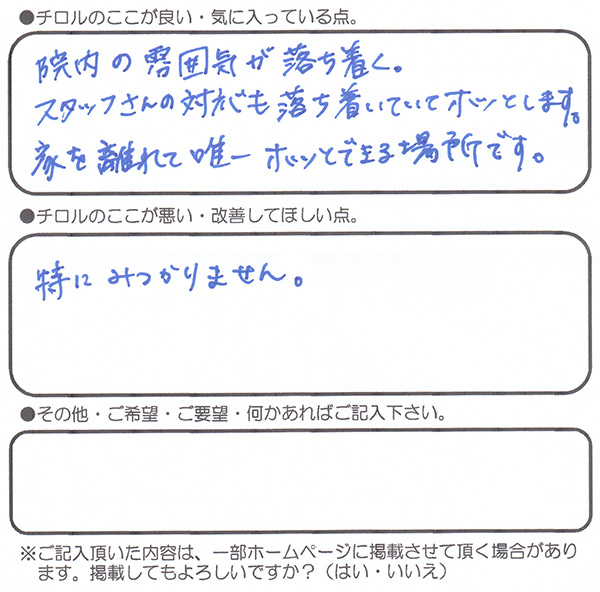 ●チロルのここが良い・気に入っている点。
院内の雰囲気が落ち着く。
スタッフさんの対応も落ち着いていてホッとします。
家を離れて唯一ホッとできる場所です。
●チロルのここが悪い・改善してほしい点。
特にみつかりません。
●その他・ご希望・ご要望・何かあればご記入下さい。
※ご記入頂いた内容は、一部ホームページに掲載させて頂く場合があり
ます。掲載してもよろしいですか？（はい・いいえ）